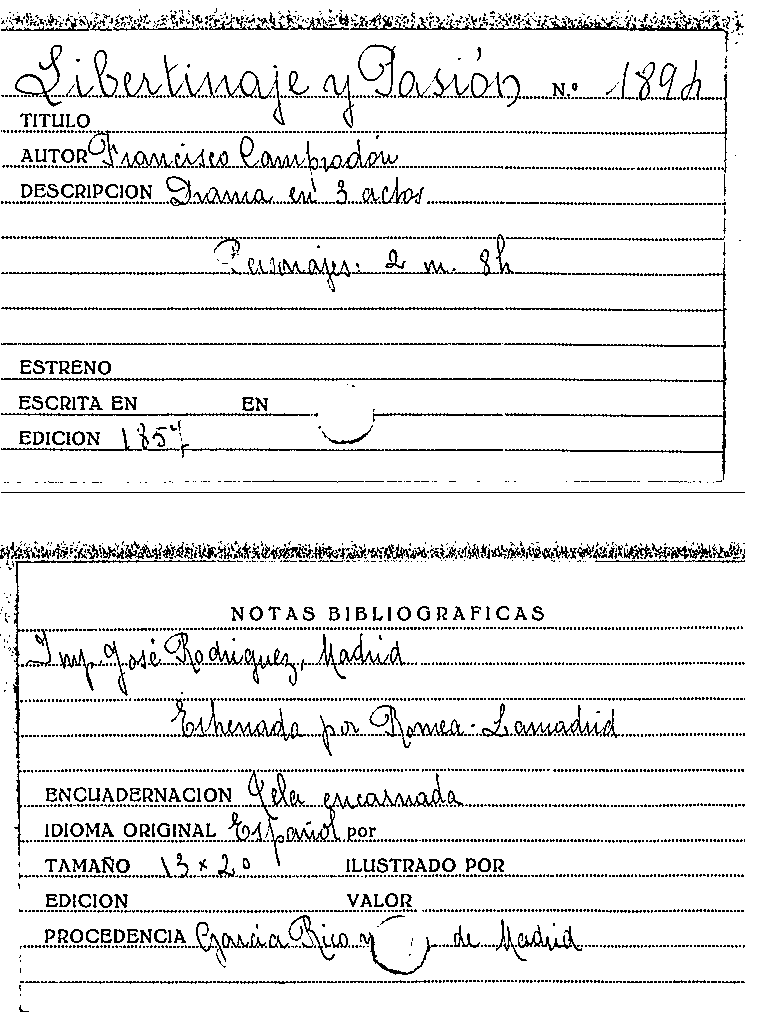 Libertinaje y Pasión N.º 1894
TITULO
AUTOR Francisco Camprodón
DESCRIPCION Drama en 3 actos
Personajes: 2 m. 8h
ESTRENO
ESCRITA EN EN
EDICION 1857
NOTAS BIBLIOGRAFICAS
Imp. José Rodriguez, Madrid
Estrenada por Romea - Lamadrid
ENCUADERNACION Tela encarnada
IDIOMA ORIGINAL Español por
TAMAÑO 13 x 20 ILUSTRADO POR
EDICION VALOR
PROCEDENCIA García Rico y de Madrid